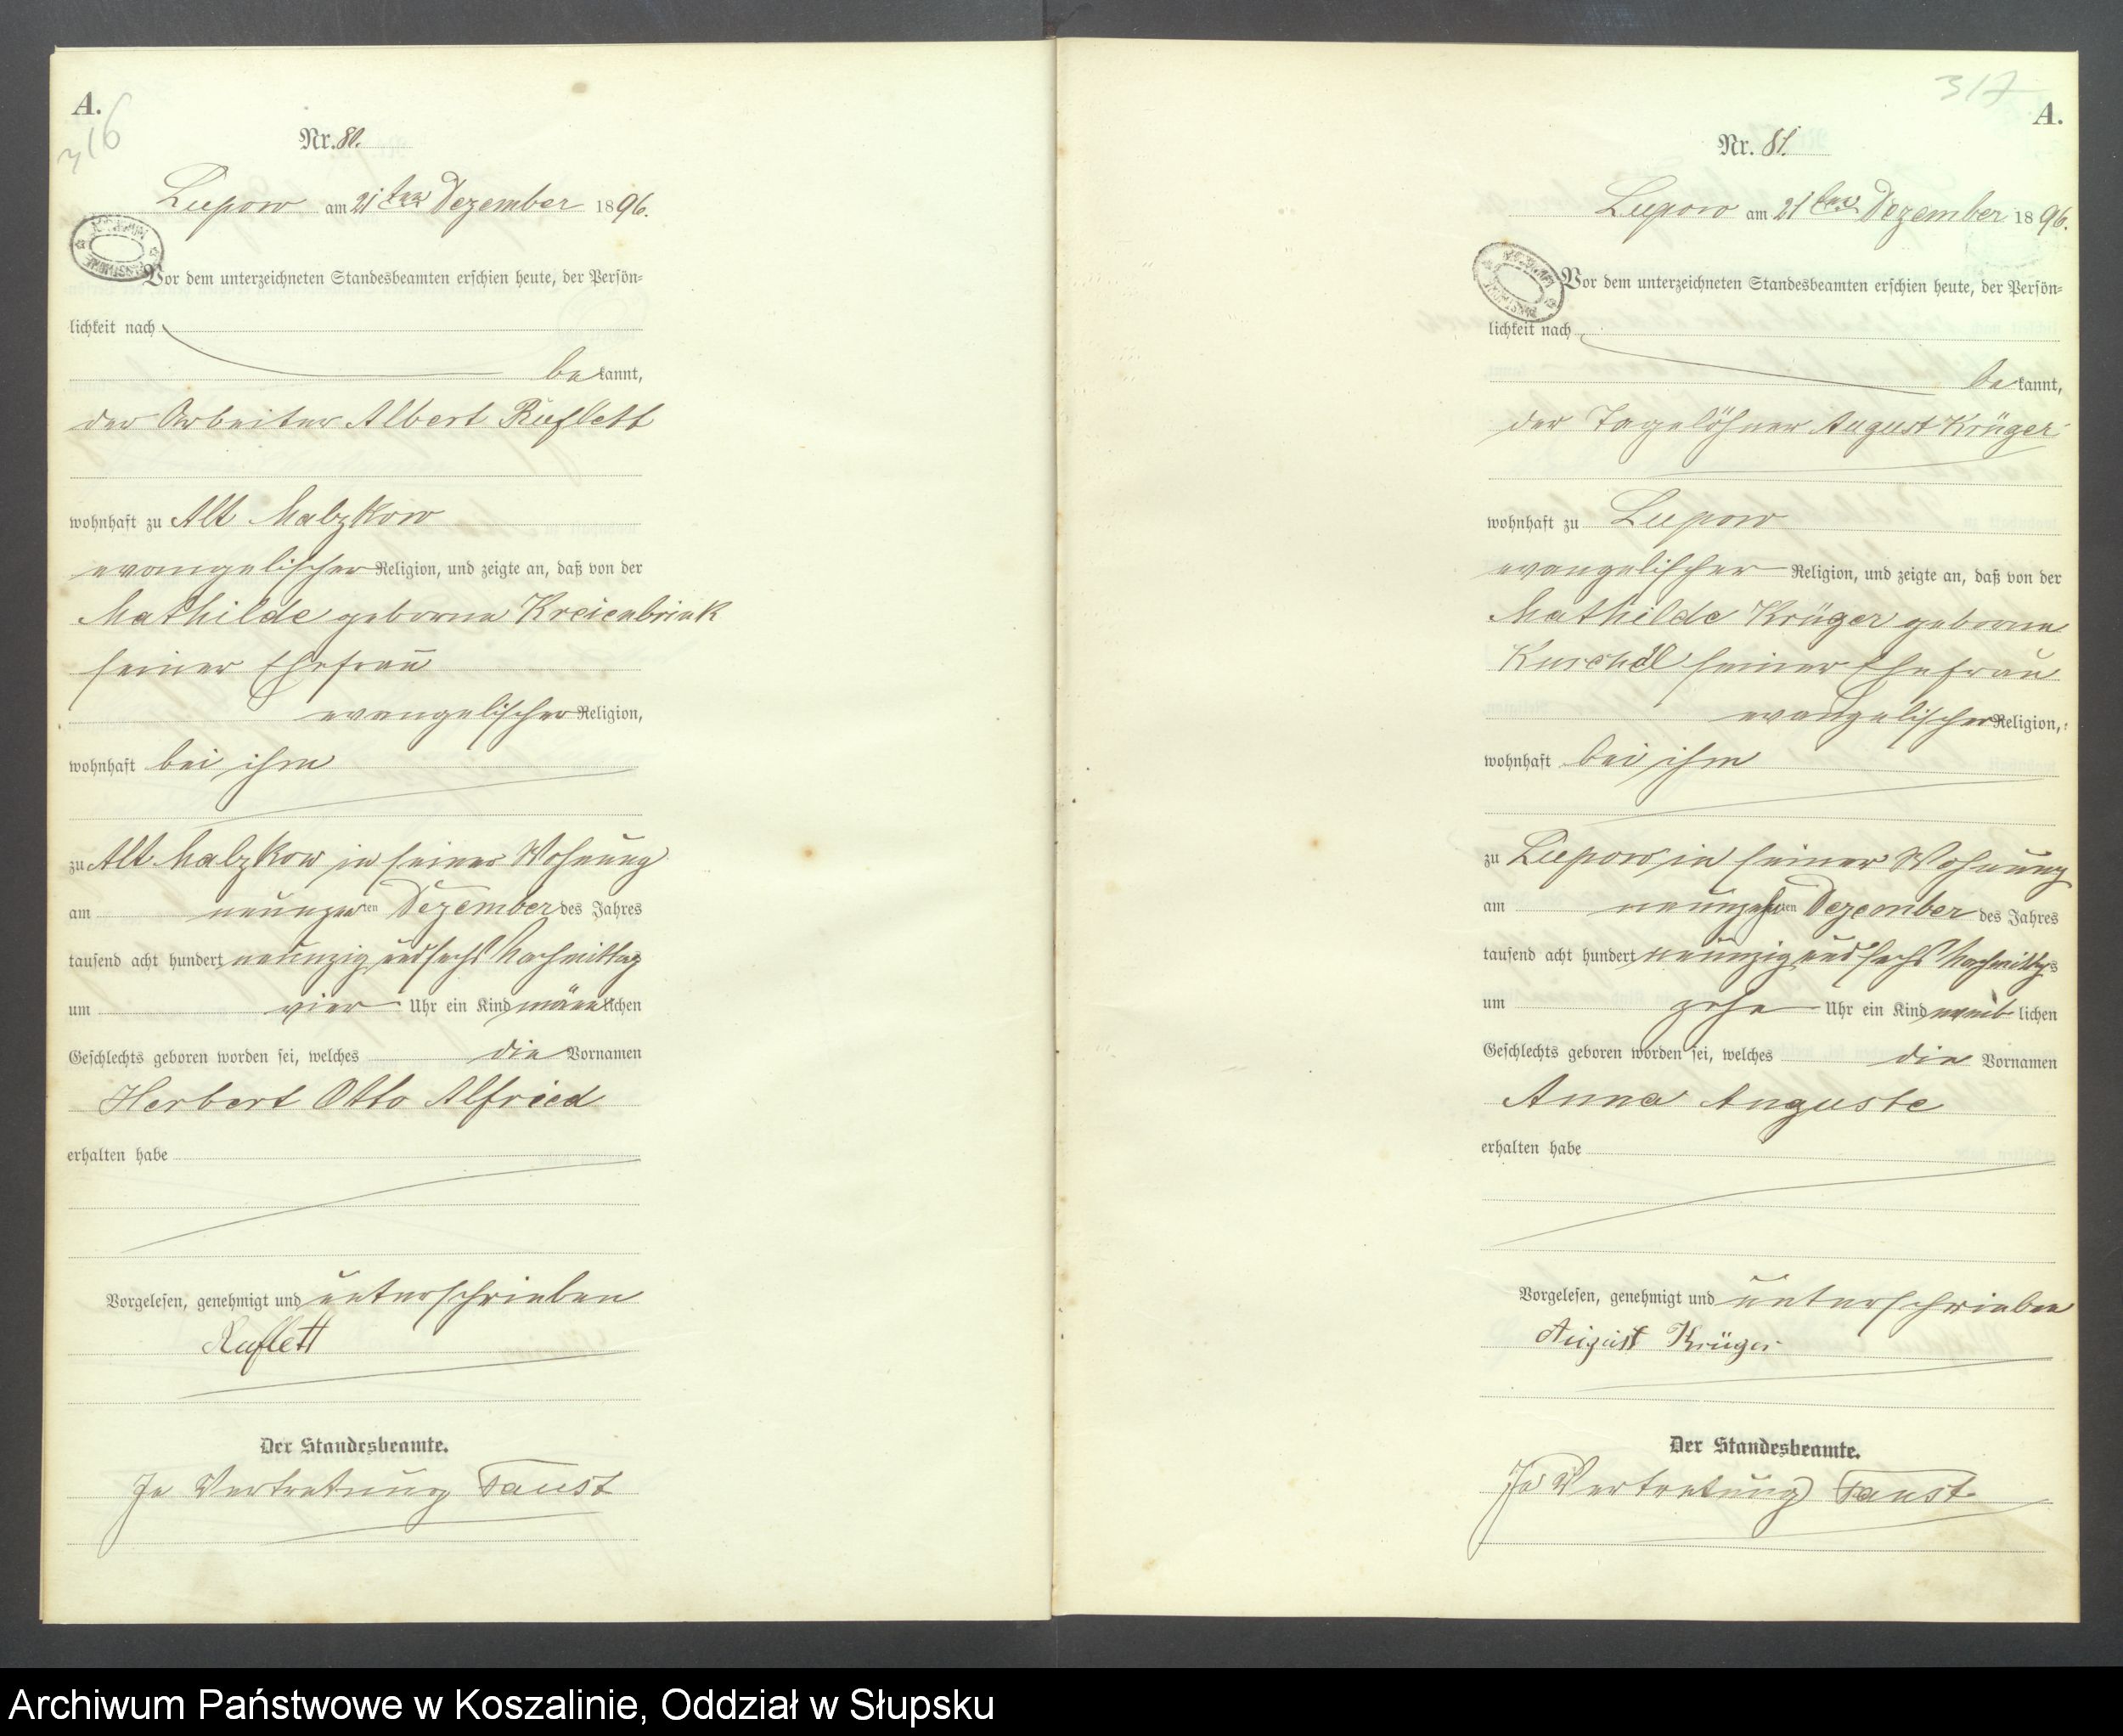 A.
316
Nr. 80.
Lupow am 21ten Dezember 1896.
Vor dem unterzeichneten Standesbeamten erschien heute, der Persön-
lichkeit nach
bekannt,
der Arbeiter Albert Ruflett
wohnhaft zu Alt Malzkow
evangelischer Religion, und zeigte an, daß von der
Mathilde geborne Kreienbrink
seiner Ehefrau
evangelischer Religion,
wohnhaft bei ihm
zu Alt Malzkow in seiner Wohnung
am neunzenten Dezember des Jahres
tausend acht hundert neunzig und sechs Nachmittag
um vier Uhr ein Kind männlichen
Geschlechts geboren worden sei, welches die Vornamen
Herbert Otto Alfried
erhalten habe
Vorgelesen, genehmigt und unterschrieben
Ruflett
Der Standesbeamte.
In Vertretung Faust
317
A.
Nr. 81.
Lupow am 21ten Dezember 1896.
Vor dem unterzeichneten Standesbeamten erschien heute, der Persön-
lichkeit nach
bekannt,
der Tagelöhner August Krüger
wohnhaft zu Lupow
evangelischer Religion, und zeigte an, daß von der
Mathilde Krüger geborne
seiner Ehefrau
evangelischer Religion,
wohnhaft bei ihm
zu Lupow in seiner Wohnung
am neunzehnten Dezember des Jahres
tausend acht hundert neunzig und sechs Nachmittags
um zehn Uhr ein Kind weiblichen
Geschlechts geboren worden sei, welches die Vornamen
Anna Auguste
erhalten habe
Vorgelesen, genehmigt und unterschrieben
August Krüger
Der Standesbeamte.
In Vertretung Faust
Archiwum Państwowe w Koszalinie, Oddział w Słupsku